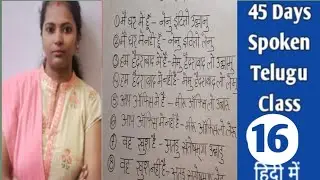 ① मैं घर में हूँ - नेनु इंटिलो उन्नानु
② मैं घर में नहीं हूँ - नेनु इंटिलो लेनु
③ हम हैदराबाद में हैं - मेमु हैदराबाद लो उन्नामु
④ हम हैदराबाद में नहीं हैं - मेमु हैदराबाद लो लेमु
⑤ आप ऑफिस में हैं - मीरु ऑफिस लो उन्नारु
⑥ आप ऑफिस में नहीं हैं - मीरु ऑफिस लो लेरु
⑦ वह खुश है - अतनु संतोषंगा उन्नाडु
⑧ वह खुश नहीं है - अतनु
45 Days
Spoken
Telugu
Class
16
हिंदी में